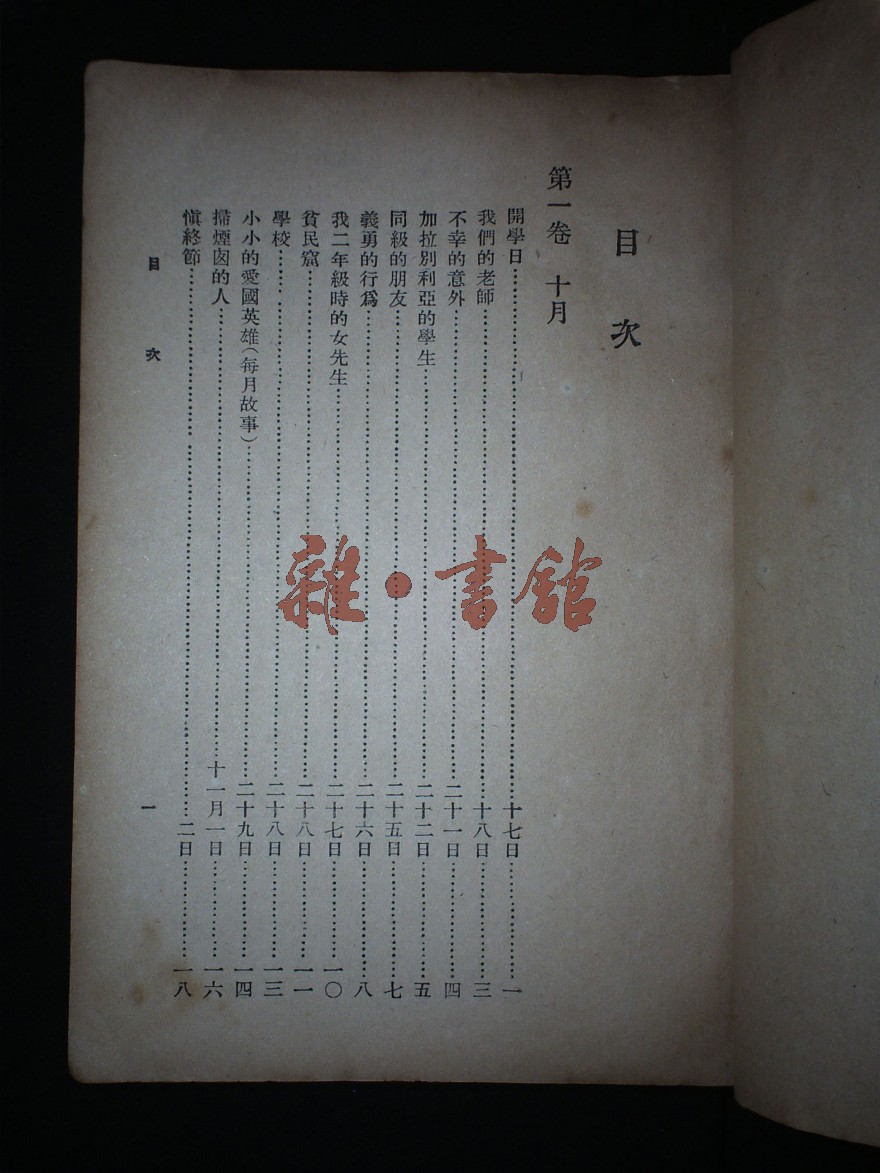 目次
第一卷 十月
開學日……十七日……一
我們的老師……十八日……三
不幸的意外……二十一日……四
加拉別利亞的學生……二十二日……五
同級的朋友……二十五日……七
義勇的行爲……二十六日……八
我二年級時的女先生……二十七日……一〇
貧民窟……二十八日……一一
學校……二十八日……一三
小小的愛國英雄(每月故事)……二十九日……一四
掃煙囪的人……十一月一日……一六
愼終節……二日……一八
目次 一
雜·書館